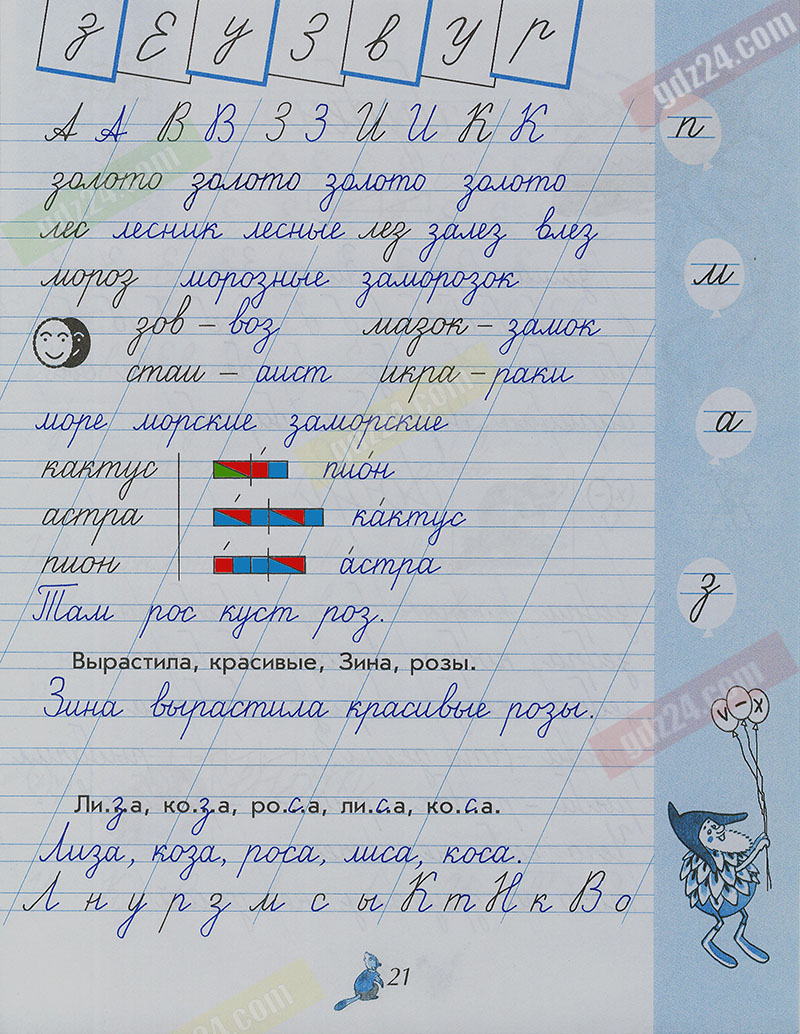 з Е у З в У р
gdz24.com
А А В В З З И И К К
п
золото золото золото золото
gdz24.com
лес лесник лесные лез залез влез
мороз морозные заморозок
м
зов – воз мазок – замок
стаи – аист икра – раки
gdz24.com
море морские заморские
а
кактус пио́н
астра ка́ктус
пион а́стра
з
Там рос куст роз.
Вырастила, красивые, Зина, розы.
Зина вырастила красивые розы.
gdz24.com
v – x
Ли.з.а, ко.з.а, ро.с.а, ли.с.а, ко.с.а.
Лиза, коза, роса, лиса, коса.
Л н у р з м с ы К т Н к В о
21
gdz24.com